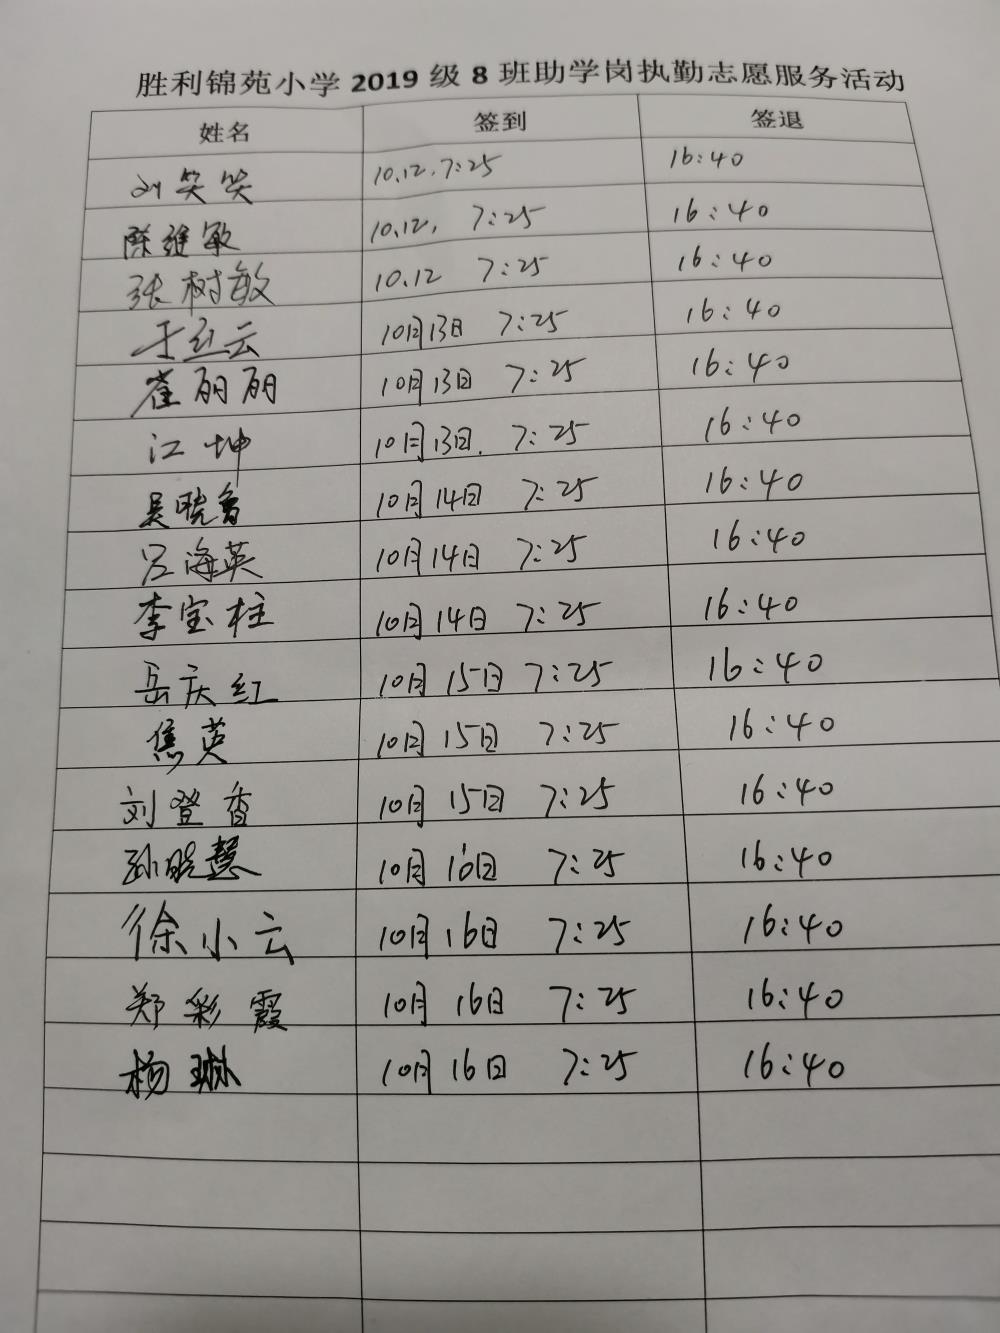 胜利锦苑小学 2019 级 8 班助学岗执勤志愿服务活动
姓名 签到 签退
刘笑笑 10.12.7:25 16:40
陈维敏 10.12. 7:25 16:40
张树敏 10.12 7:25 16:40
于红云 10月13日 7:25 16:40
崔丽丽 10月13日 7:25 16:40
江坤 10月13日. 7:25 16:40
吴晓鲁 10月14日 7:25 16:40
吕海英 10月14日 7:25 16:40
李宝柱 10月14日 7:25 16:40
岳庆红 10月15日 7:25 16:40
焦英 10月15日 7:25 16:40
刘登香 10月15日 7:25 16:40
孙晓慧 10月16日 7:25 16:40
徐小云 10月16日 7:25 16:40
郑彩霞 10月16日 7:25 16:40
杨琳 10月16日 7:25 16:40